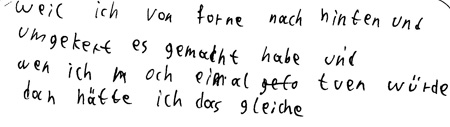 weil ich von forne nach hinten und
umgekert es gemacht habe und
wen ich noch eimal tuen würde
dan hätte ich das gleiche